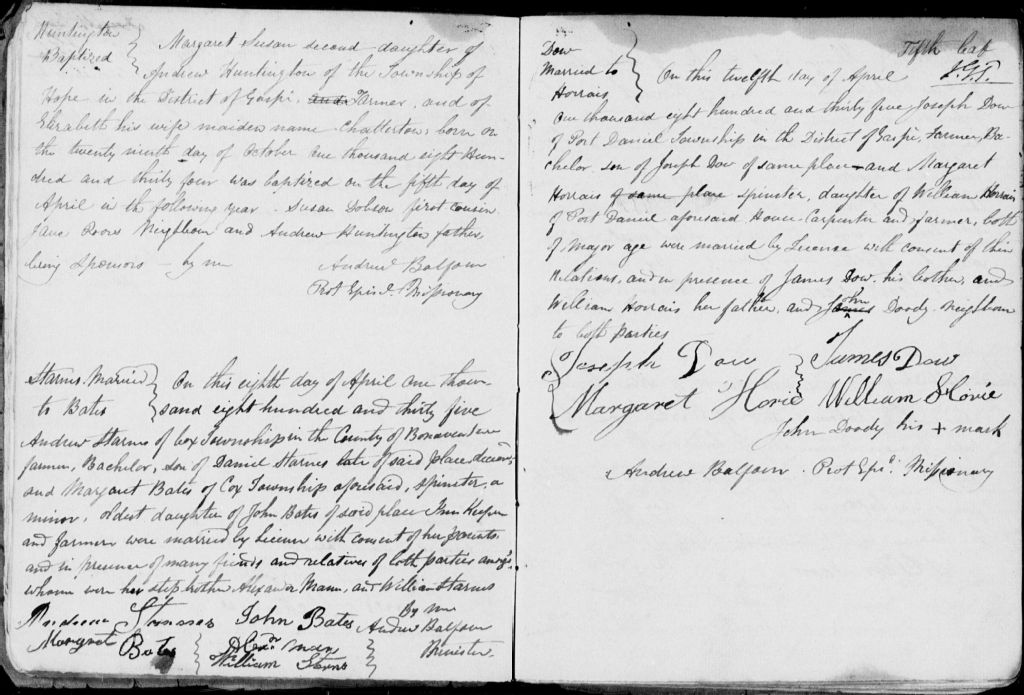 Huntington
Baptized
Margaret Susan second daughter of
Andrew Huntington of the Township of
Hope in the District of Gaspé, and Farmer, and of
Elizabeth his wife maiden name Chatterton, born on
the twenty ninth day of October One thousand eight Hun-
dred and thirty four was baptized on the fifth day of
April in the following year. Susan Dobson first cousin
Jane Neighbour and Andrew Huntington father,
being Sponsors - by me
Andrew Balfour
Prot Episl. Missionary
Starns Married
to Bates
On this eighth day of April One thou-
sand eight hundred and thirty five
Andrew Starns of Cox Township in the County of Bonaventure
farmer, Bachelor, son of Daniel Starns late of said place deceased,
and Margaret Bates of Cox Township aforesaid, spinster, a
minor, oldest daughter of John Bates of said place Inn Keeper
and farmer were married by License with consent of her parents
and in presence of many friends and relatives of both parties amongst
whome were her step brother Alexander Mann, and William Starns
By me
John Bates
Andrew Balfour
Margret Bates
Alexdr Man
Minister.
William Starns
Fifth leaf
Dow
Married to
Horrais
On this twelfth day of April
One thousand eight hundred and thirty five Joseph Dow
of Port Daniel Township in the District of Gaspé, Farmer, Ba-
chelor son of Joseph Dow of same place - and Margaret
Horrais of same place spinster, daughter of William Horrais
of Port Daniel aforesaid House-Carpenter and farmer, both
of Major age were married by License with consent of their
relations, and in presence of James Dow, his brother, and
William Horrais her father, and James John Doody neighbour
to both parties
Joseph Dow
James Dow
Margaret Horie
William Horie
John Doody his + mark
Andrew Balfour. Prot Epis. Missionary